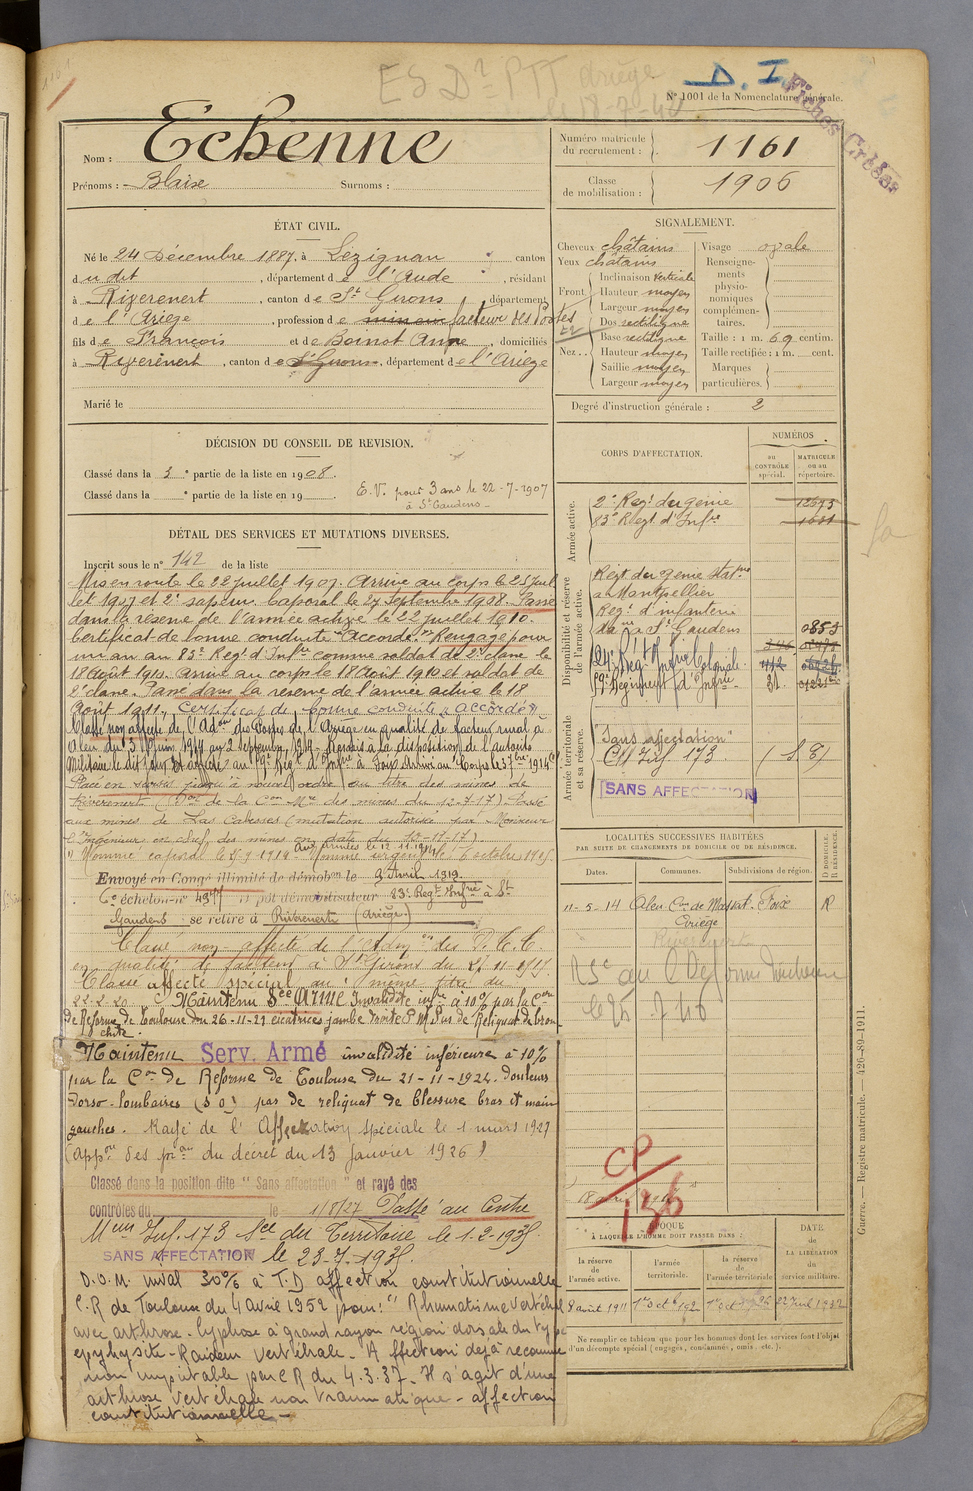 ESD PTT Ariège
18-7-40
D. I.
N° 1001 de la Nomenclature générale.
Fiches Croisées
Nom : Echenne
Prénoms : Blaise Surnoms :
Numéro matricule du recrutement : 1161
Classe de mobilisation : 1906
ÉTAT CIVIL.
Né le 24 Décembre 1887, à Lézignan canton
du dit, département de l'Aude, résidant
à Riverenert, canton de St Girons, département
de l'Ariège, profession de facteur des Postes
fils de François et de Boinot Anne, domiciliés
à Riverenert, canton de St Girons, département de l'Ariège
Marié le
SIGNALEMENT.
Cheveux châtains Visage ovale
Yeux châtains
Front Inclinaison verticale
Hauteur moyen
Largeur moyen
Nez Dos rectiligne
Base rectiligne
Hauteur moyen
Saillie moyen
Largeur moyen
Renseignements physionomiques complémentaires.
Taille : 1 m. 69 centim.
Taille rectifiée : 1 m. cent.
Marques particulières.
Degré d'instruction générale : 2
DÉCISION DU CONSEIL DE REVISION.
Classé dans la 3e partie de la liste en 1908.
Classé dans la e partie de la liste en 19 .
E.V. pour 3 ans le 22-7-1907
à St Gaudens
DÉTAIL DES SERVICES ET MUTATIONS DIVERSES.
Inscrit sous le n° 142 de la liste
Mis en route le 22 juillet 1907. Arrivé au corps le 25 juil
let 1907 et 2e sapeur. Caporal le 27 Septembre 1908. Passé
dans la réserve de l'armée active le 22 juillet 1910.
Certificat de bonne conduite "Accordé". Rengagé pour
un an au 83e Régt d'Infrie comme soldat de 2e classe le
18 Août 1910. Arrivé au corps le 18 Août 1910 et soldat de
2e classe. Passé dans la réserve de l'armée active le 18
Août 1911. Certificat de bonne conduite "accordé"
Classé non affecté de l'Adon des Postes de l'Ariège en qualité de facteur rural à
Aleu du 3 Juin 1914 au 2 Septembre 1914. Remis à la disposition de l'autorité
Militaire le dit jour et affecté au 59e Régt d'Infie à Foix Arrivé au Corps le 3 7bre 1914
Placé en sursis jusqu'à nouvel ordre au titre des mines de
Riverenert (Don de la Con Mre des mines du 12-7-17) Passé
aux mines de Las Cabesses (mutation autorisée par Monsieur
l'Ingénieur en chef des mines en date du 10-11-17)
Aux Armées le 12.11.1914
Nommé caporal le 5-9-1914. Nommé sergent le 6 octobre 1915
Envoyé en Congé illimité de démobon le 9 Avril 1919.
6e échelon n° 4377 dépôt démobilisateur 83e Régt Infrie à St
Gaudens se retire à Riverenert (Ariège)
Classé non affecté de l'Admon des P.T.T.
en qualité de facteur à St Girons du 27-11-1919
Classé affecté spécial au même titre du
22-2-20. Maintenu Sce Armé Invalidité infre à 10% par la Con
de Réforme de Toulouse du 26-11-21 cicatrices jambe droite P.M. Pas de Reliquat de bron
chite
Maintenu Serv. Armé invalidité inférieure à 10%
par la Con de Réforme de Toulouse du 21-11-1924. douleurs
dorso-lombaires (S O) pas de reliquat de blessure bras et main
gauches. Rayé de l'Affectation spéciale le 1 mars 1927
(appon des pron du décret du 13 Janvier 1926)
Classé dans la position dite "Sans affectation" et rayé des
contrôles du le 1/8/27 Passé au Centre
Mem Inf. 173 Sce du Territoire le 1-2-1935
SANS AFFECTATION le 23-7-1935
D.O.M. inval 30% à T.D. affection constitutionnelle
C.R de Toulouse du 4 avril 1952 pour: "Rhumatisme vertébral
avec arthrose - Cyphose à grand rayon région dorsale du type
épiphysite - Raideur vertébrale - Affection déjà reconnue
non imputable par C R du 4.3.37. Il s'agit d'une
arthrose vertébrale non traumatique - affection
constitutionnelle -
CORPS D'AFFECTATION.
NUMÉROS
au CONTRÔLE spécial.
MATRICULE ou au répertoire.
Armée active.
2e Régt du génie 12693
83e Régt d'Infrie
Disponibilité et réserve de l'armée active.
Régt du génie statné
à Montpellier
Régt d'infanterie
à St Gaudens 0853
24e Régt Infrie Coloniale
59e Régiment d'Infrie 31
Armée territoriale et sa réserve.
"Sans affectation"
C M Inf 173 (S T)
SANS AFFECTATION
LOCALITÉS SUCCESSIVES HABITÉES
PAR SUITE DE CHANGEMENTS DE DOMICILE OU DE RÉSIDENCE.
Dates. Communes. Subdivisions de région. D DOMICILE. R RÉSIDENCE.
11-5-14 Aleu Con de Massat Foix R
Ariège
Riverenert
CP
136
ÉPOQUE
À LAQUELLE L'HOMME DOIT PASSER DANS :
DATE DE LA LIBÉRATION du service militaire.
la réserve de l'armée active.
l'armée territoriale.
la réserve de l'armée territoriale.
8 août 1911
Ne remplir ce tableau que pour les hommes dont les services font l'objet
d'un décompte spécial (engagés, condamnés, omis, etc.).
Guerre. — Registre matricule. — 426-89-1911.